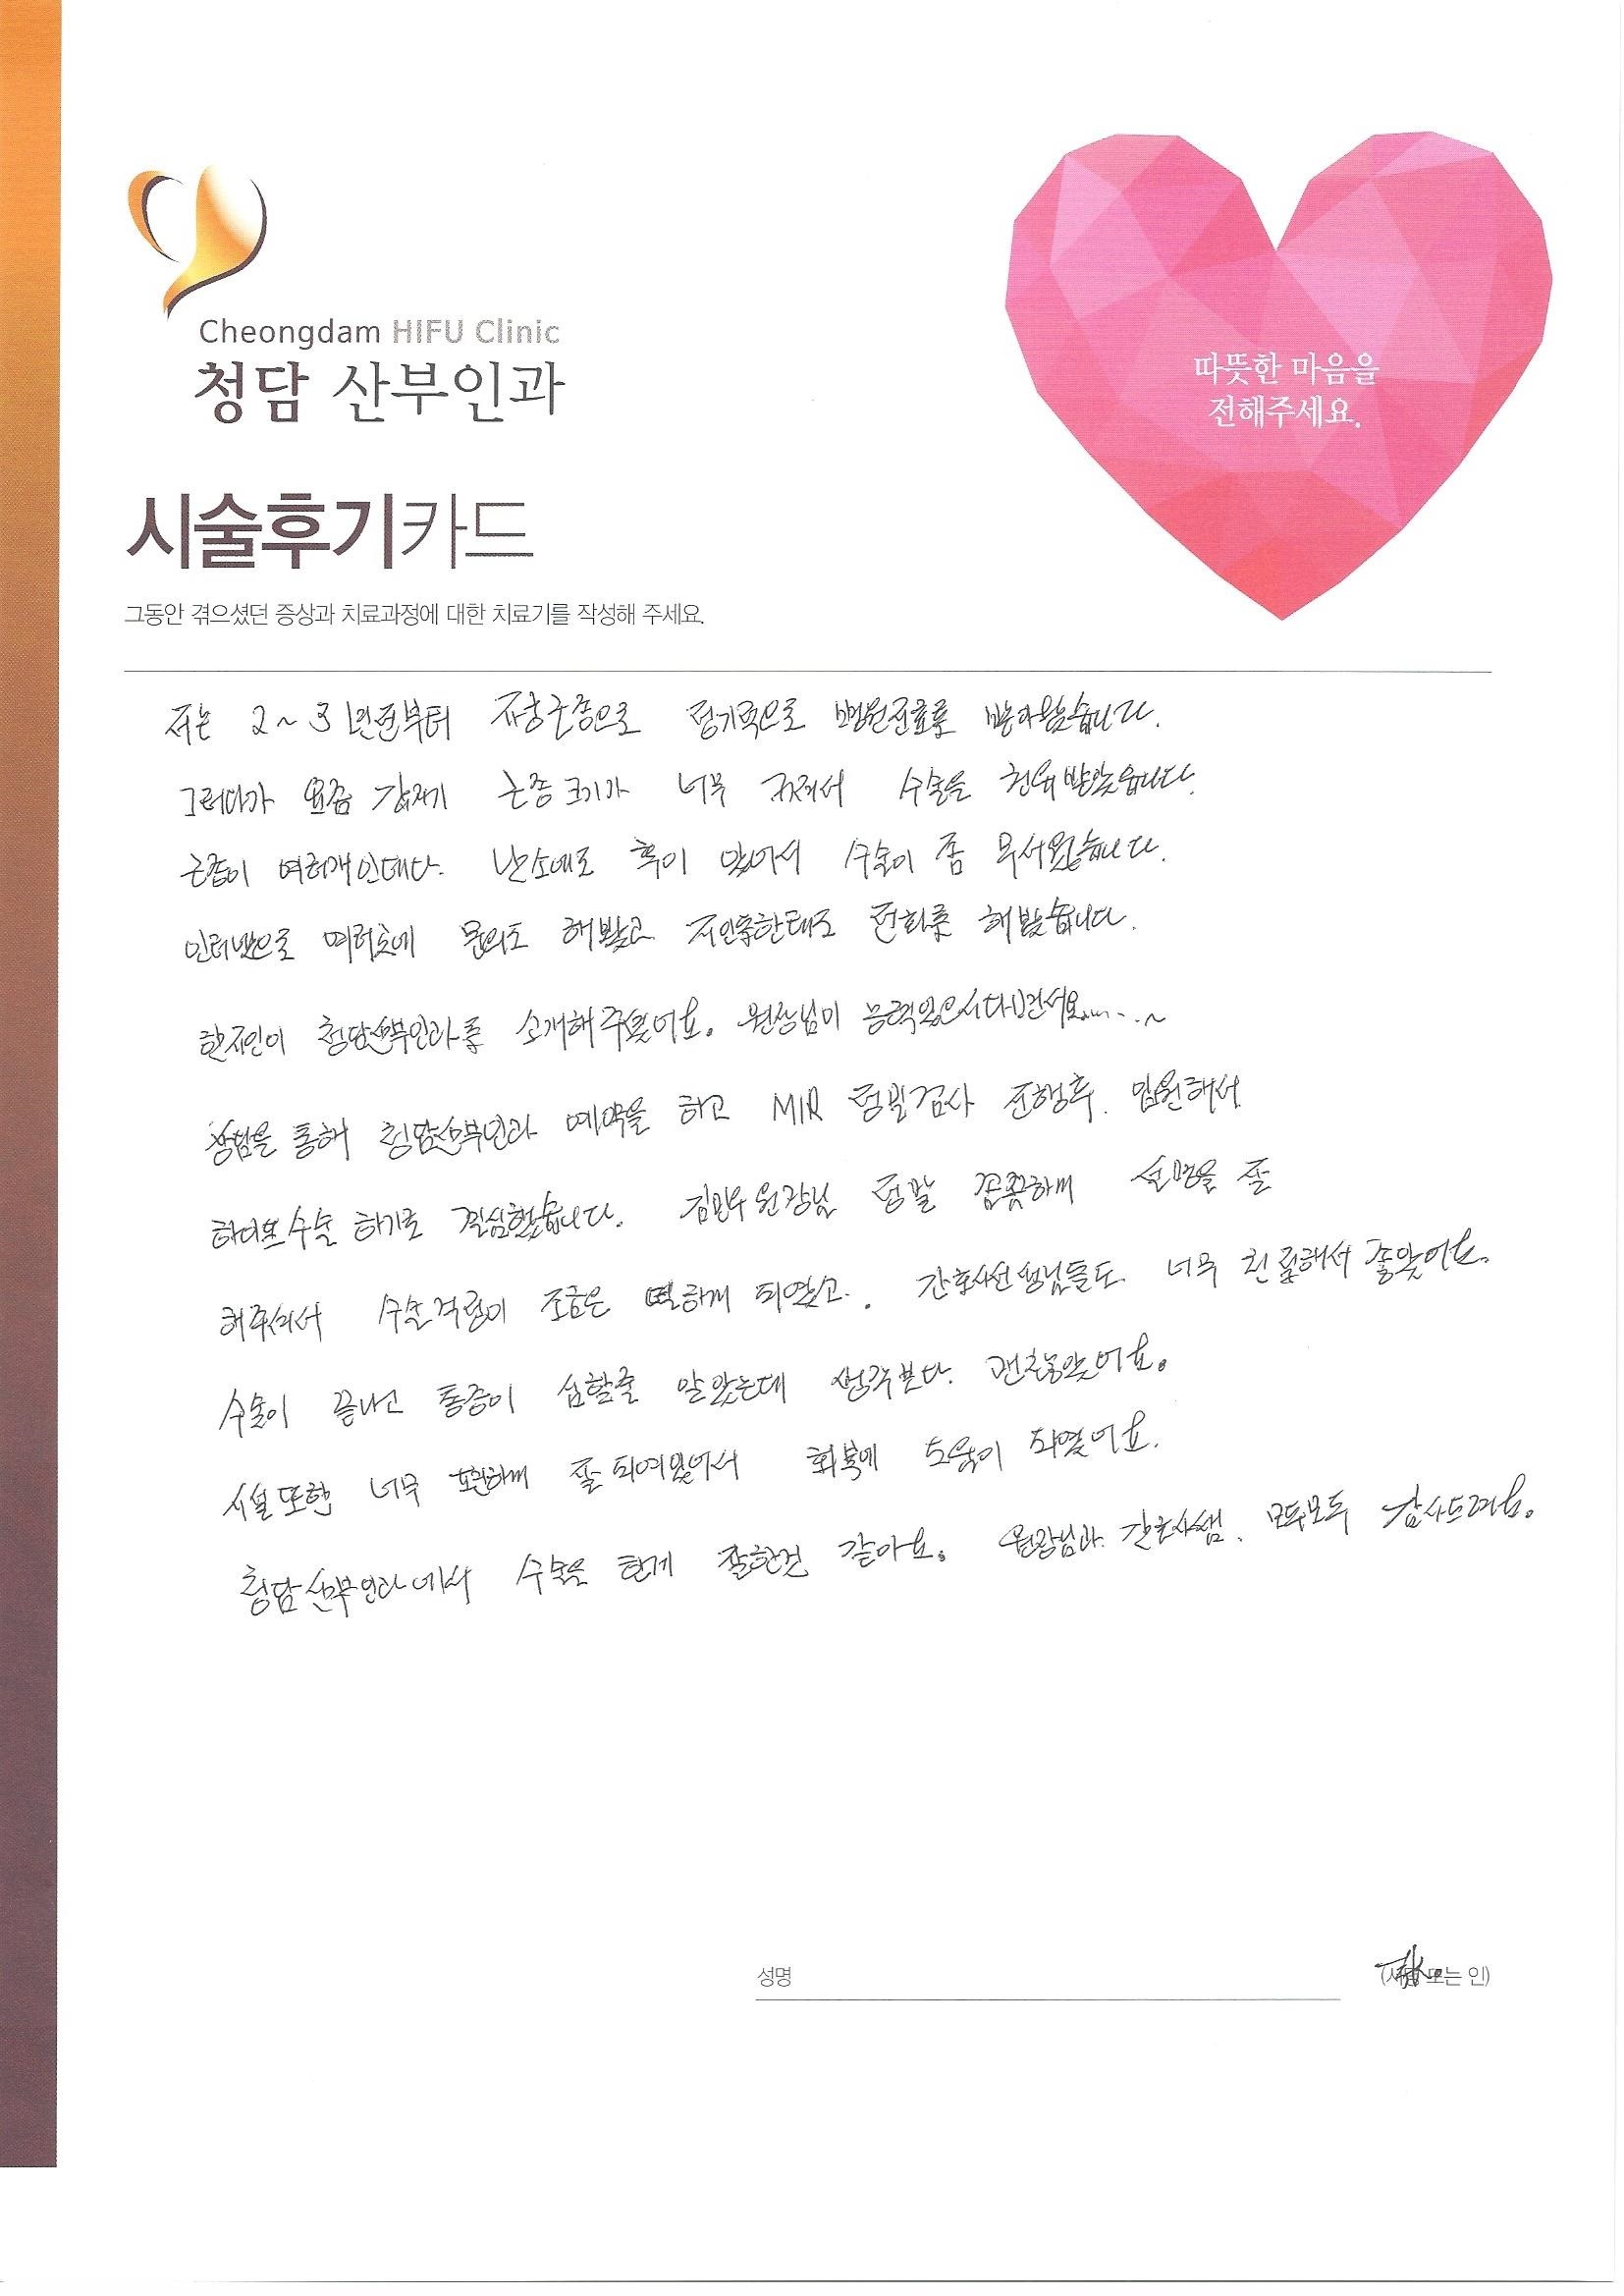 Cheongdam HIFU Clinic
청담 산부인과
따뜻한 마음을
전해주세요.
시술후기카드
그동안 겪으셨던 증상과 치료과정에 대한 치료기를 작성해 주세요.
저는 2~3년전부터 자궁근종으로 정기적으로 병원진료를 받아왔습니다.
그러다가 요즘 갑자기 근종크기가 너무 커져서 수술을 권유받았습니다.
근종이 여러개인데다. 난소에도 혹이 있어서 수술이 좀 무서웠습니다.
인터넷으로 여러곳에 문의도 해봤고 지인들한테도 전화를 해봤습니다.
한지인이 청담산부인과를 소개해주셨어요. 원장님이 능력있으시다면서요....~
상담을 통해 청담산부인과 예약을 하고 MIR 정밀검사 진행후. 입원해서
하이프수술 하기로 결심했습니다. 김민우원장님 정말 꼼꼼하게 설명을 잘
해주셔서 수술걱정이 조금은 덜하게 되였고. 간호사선생님들도 너무 친절해서 좋았어요.
수술이 끝나고 통증이 심할줄 알았는데 생각보다. 괜찮았어요.
시설또한 너무 편하게 잘되여있어서 회복에 도움이 되였어요.
청담산부인과에서 수술을 한게 잘한건 같아요. 원장님과 간호사쌤. 모두모두 감사드려요.
성명
(서명 또는 인)